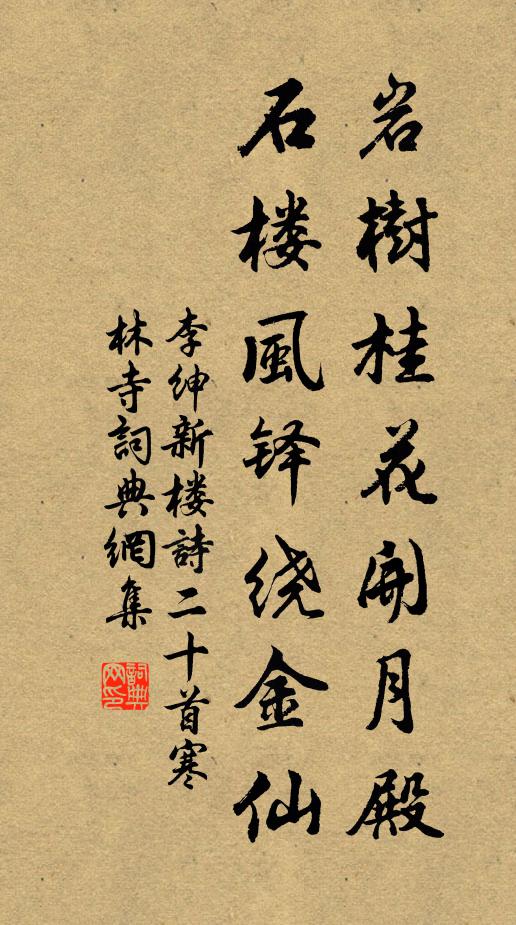 岩樹桂花開月殿
石楼風铎绕金仙
李绅新楼詩二十首寒
林寺詞典網集
詞典网印